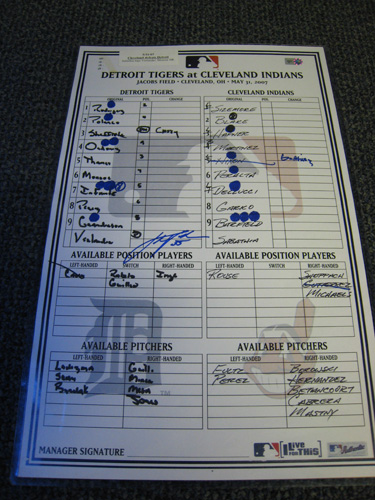 DETROIT TIGERS at CLEVELAND INDIANS
JACOBS FIELD • CLEVELAND, OH • MAY 31, 2007
DETROIT TIGERS CLEVELAND INDIANS
ORIGINAL POS. CHANGE ORIGINAL POS. CHANGE
1 Rodriguez 1 SIZEMORE
2 Polanco 2 BLAKE
3 Sheffield Casey 3 HAFNER
4 Ordonez 4 MARTINEZ
5 Thames 5
6 Monroe 6 PERALTA
7 Infante 7 DELLUCCI
8 8 GARKO
9 Granderson 9 BARFIELD
Verlander SABATHIA
AVAILABLE POSITION PLAYERS AVAILABLE POSITION PLAYERS
LEFT-HANDED SWITCH RIGHT-HANDED LEFT-HANDED SWITCH RIGHT-HANDED
Rabelo Inge ROUSE SHOPPACH
Guillen GUTIERREZ
MICHAELS
AVAILABLE PITCHERS AVAILABLE PITCHERS
LEFT-HANDED RIGHT-HANDED LEFT-HANDED RIGHT-HANDED
Ledezma FULTZ BOROWSKI
PEREZ HERNANDEZ
Mesa BETANCOURT
Jones CABRERA
MASTNY
MANAGER SIGNATURE
I Live for THIS